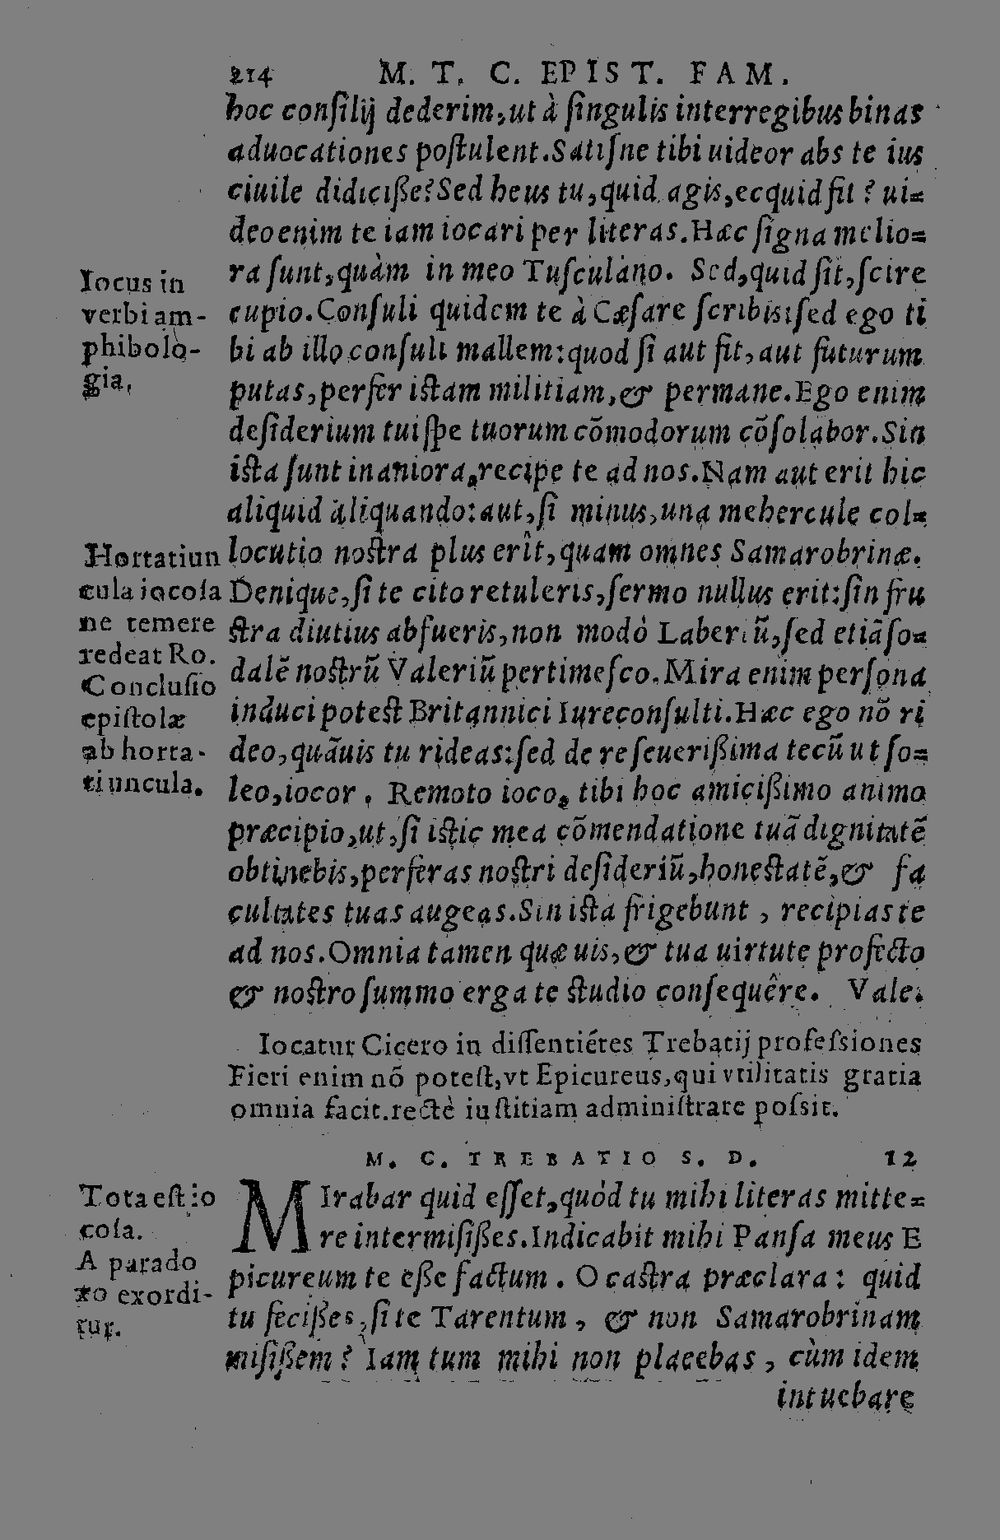 214 M. T. C. EPIST. FAM.
hoc consilij dederim, ut à singulis interregibus binas
aduocationes postulent. Satisne tibi uideor abs te ius
ciuile didicisse? Sed heus tu, quid agis, ecquid fit? ui=
deo enim te iam iocari per literas. Hæc signa melio=
ra sunt, quàm in meo Tusculano. Sed, quid sit, scire
cupio. Consuli quidem te à Cæsare scribis: sed ego ti
bi ab illo consuli mallem: quod si aut fit, aut futurum
putas, perfer istam militiam, & permane. Ego enim
desiderium tui spe tuorum cõmodorum cõsolabor. Sin
ista sunt inaniora, recipe te ad nos. Nam aut erit hic
aliquid aliquando: aut, si minus, una mehercule col=
locutio nostra plus erit, quam omnes Samarobrinæ.
Denique, si te cito retuleris, sermo nullus erit: sin fru
stra diutius abfueris, non modò Laberiũ, sed etiã so=
dalẽ nostrũ Valeriũ pertimesco. Mira enim persona
induci potest Britannici Iureconsulti. Hæc ego nõ ri
deo, quãuis tu rideas: sed de re seuerissima tecũ ut so=
leo, iocor. Remoto ioco, tibi hoc amicissimo animo
præcipio, ut, si istic mea cõmendatione tuã dignitatẽ
obtinebis, perferas nostri desideriũ, honestatẽ, & fa
cultates tuas augeas. Sin ista frigebunt, recipias te
ad nos. Omnia tamen quæ uis, & tua uirtute profecto
& nostro summo erga te studio consequêre. Vale.
Iocus in
verbi am-
phibolo-
gia.
Hortatiun
cula iocosa
ne temere
redeat Ro.
Conclusio
epistolæ
ab horta-
tiuncula.
Iocatur Cicero in dissentiẽtes Trebatij professiones
Fieri enim nõ potest, vt Epicureus, qui vtilitatis gratia
omnia facit. rectè iustitiam administrare possit.
M. C. TREBATIO S. D. 12
MIrabar quid esset, quòd tu mihi literas mitte=
re intermisisses. Indicabit mihi Pansa meus E
picureum te esse factum. O castra præclara: quid
tu fecisses, si te Tarentum, & non Samarobrinam
misissem? Iam tum mihi non placebas, cùm idem
intuebare
Tota est io
cosa.
A parado
xo exordi-
tur.